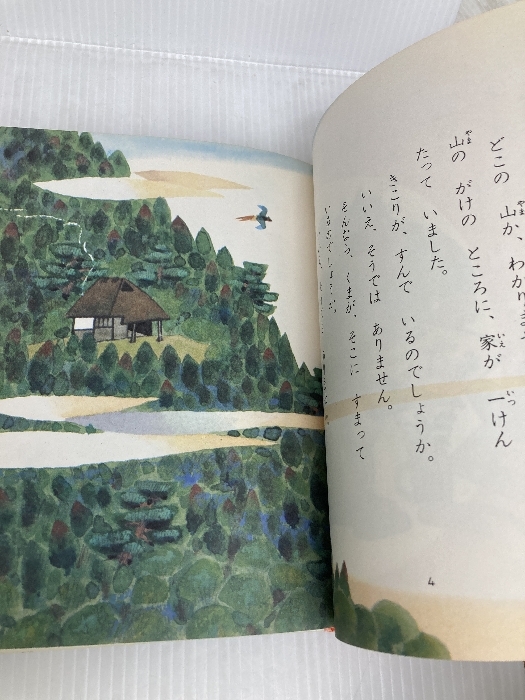 どこの 山か、
山の がけの ところに、家が 一けん
たって いました。
きこりが、すんで いるのでしょうか。
いいえ、そうでは ありません。
そんなら、くまが、そこに すまって
いるのでしょうか。
4